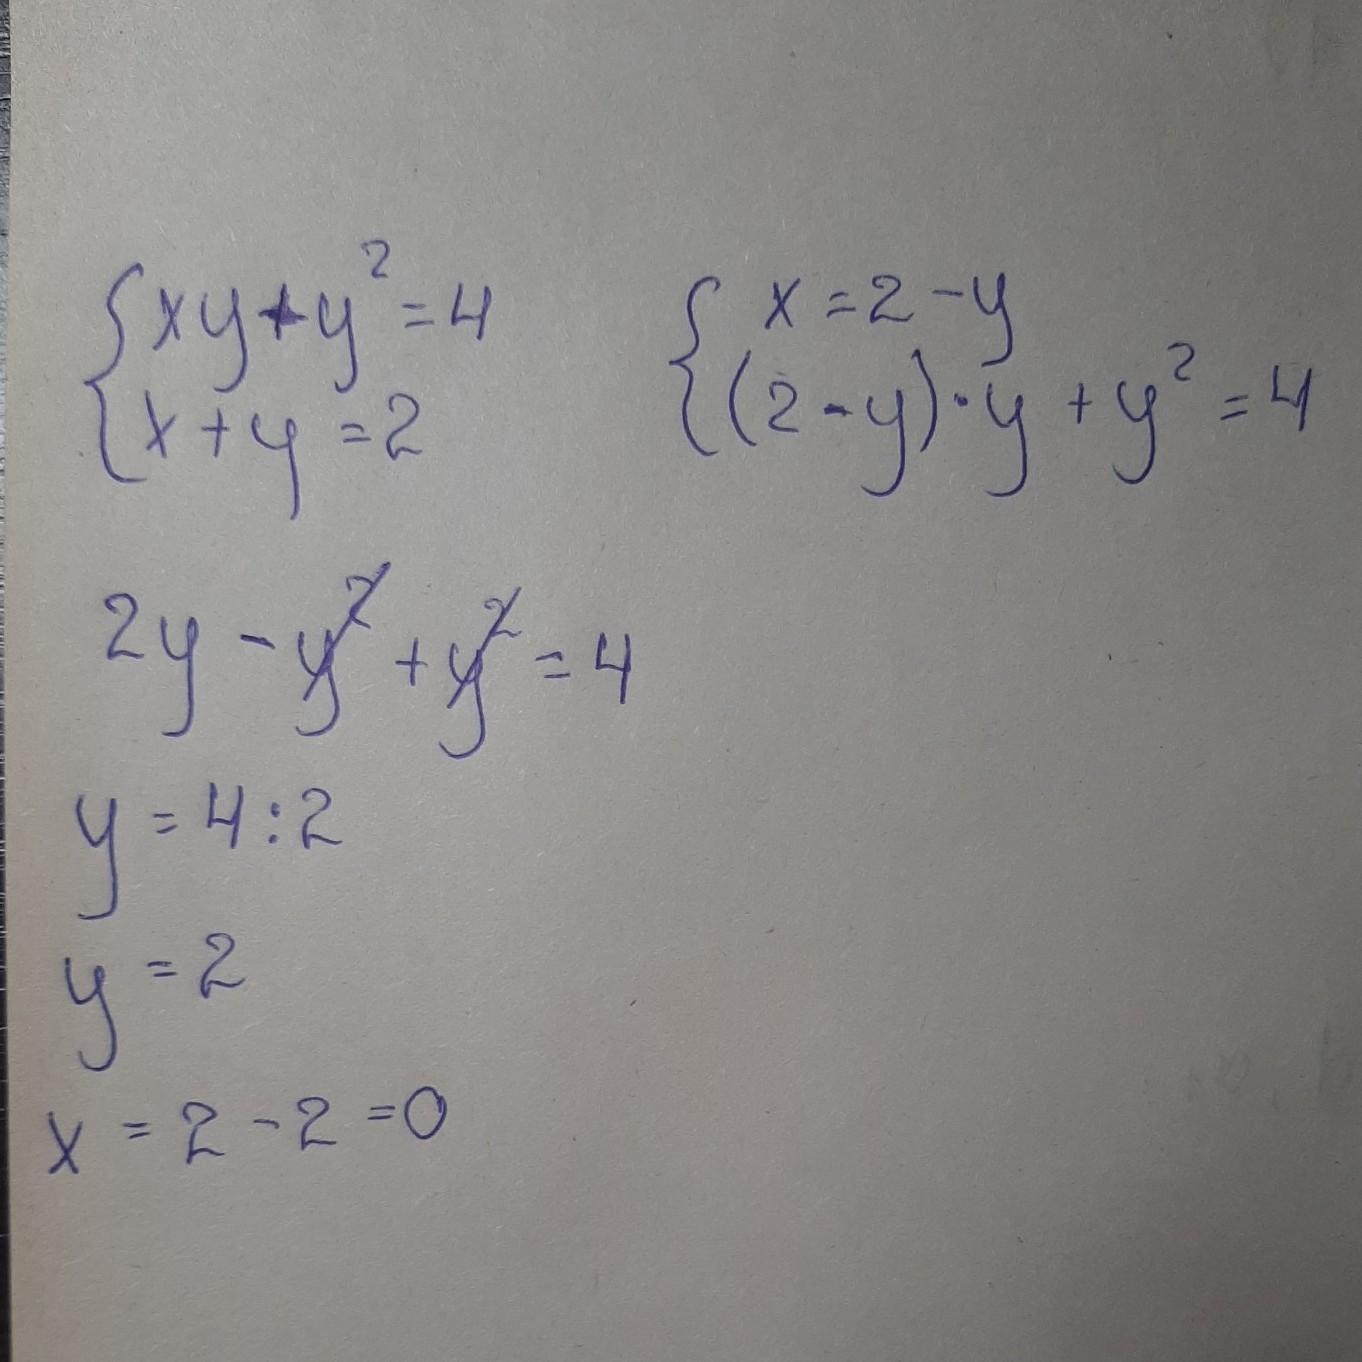 {xy+y²=4
x+y=2
{x=2-y
(2-y)·y+y²=4
2y-y²+y²=4
y=4:2
y=2
x=2-2=0